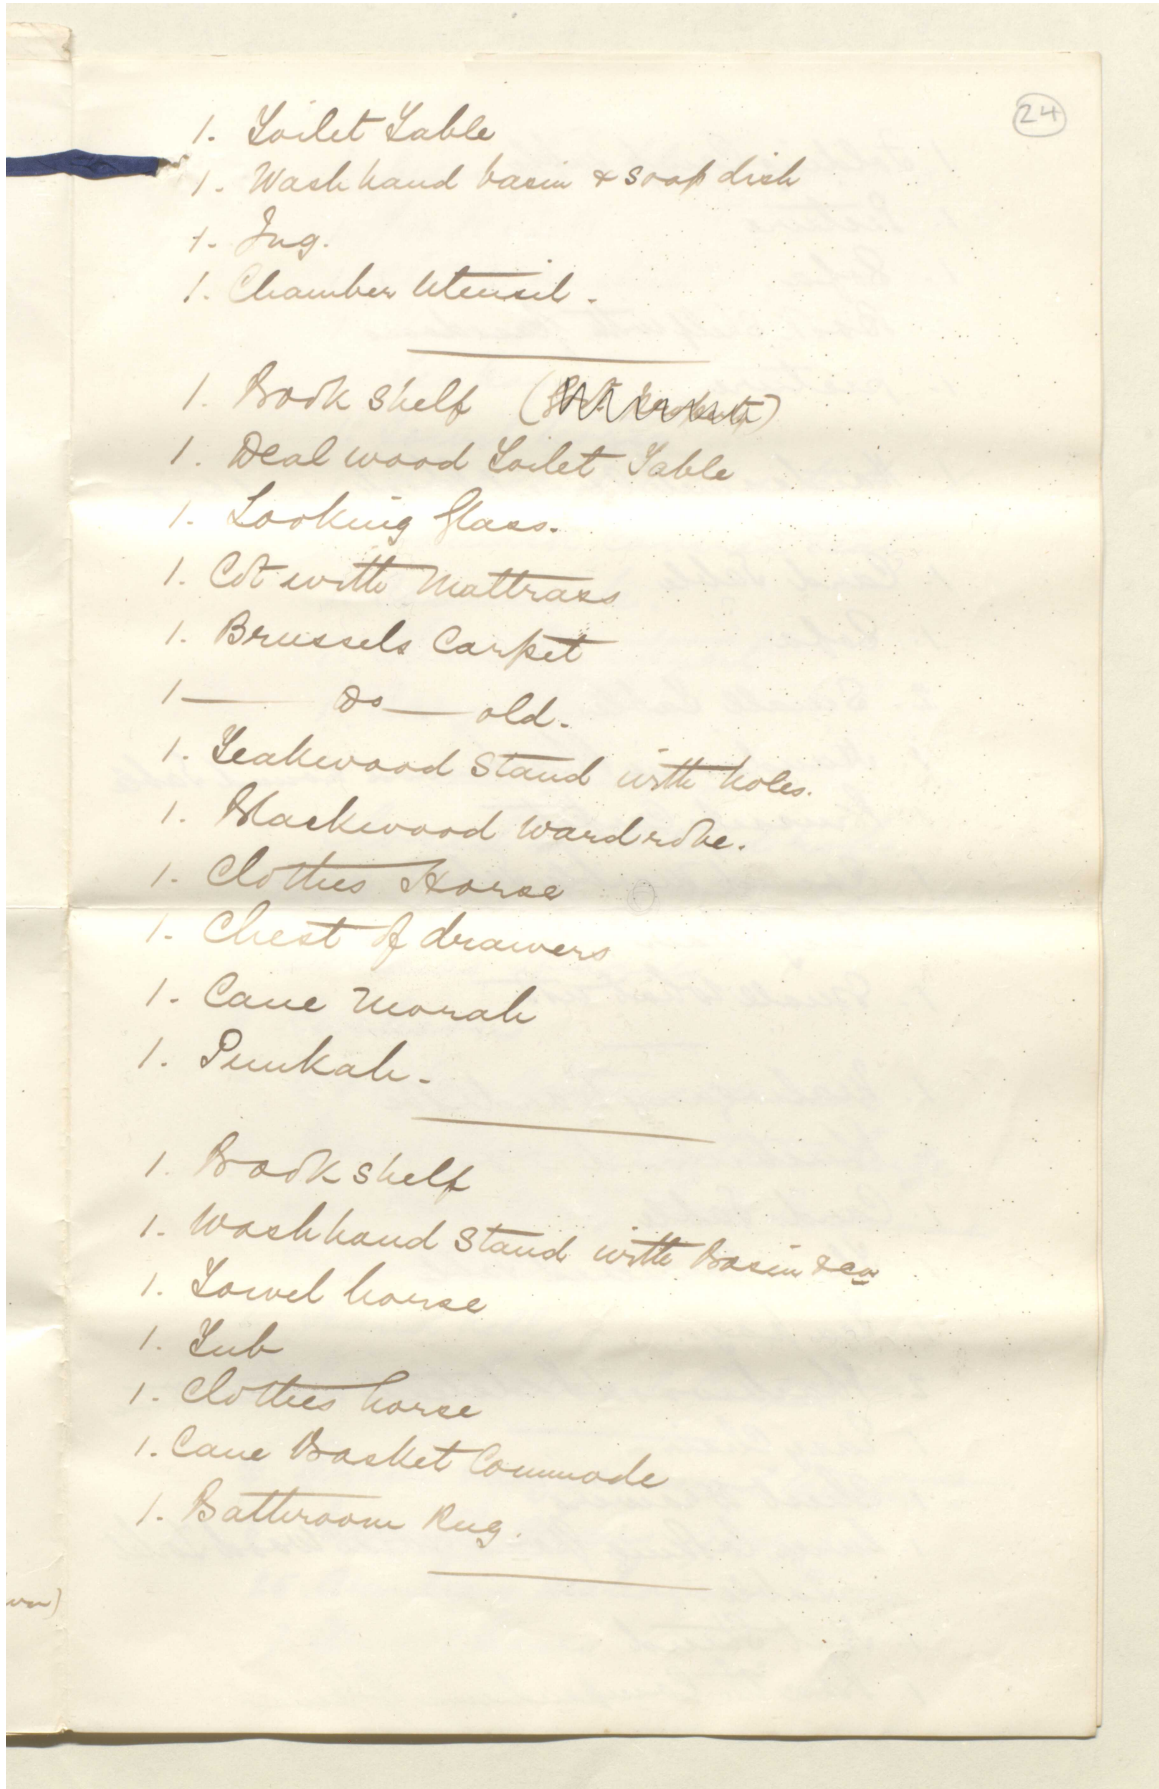 24
1. Toilet Table
1. Wash hand basin & soap dish
1. Jug.
1. Chamber Utensil.
1. Book shelf
1. Deal wood Toilet Table
1. Looking Glass.
1. Cot with Mattrass
1. Brussels Carpet
1 — Do — old.
1. Teakwood Stand with holes.
1. Blackwood Wardrobe.
1. Clothes Horse
1. Chest of drawers
1. Cane Morah
1. Punkah.
1. Book shelf
1. Washhand Stand with Basin &ca
1. Towel horse
1. Tub
1. Clothes horse
1. Cane Basket Commode
1. Bathroom Rug.